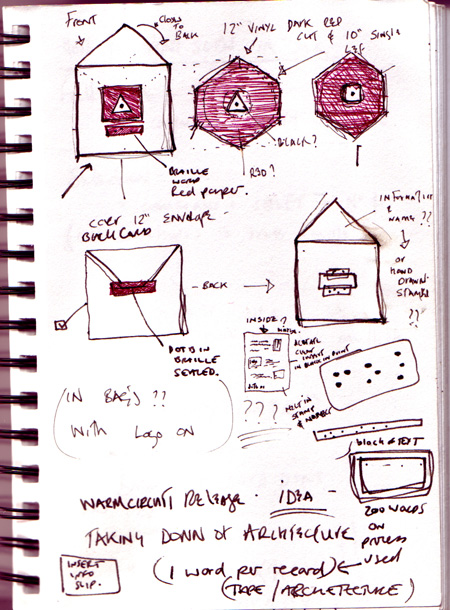 FRONT
CLOSES
TO
BACK
12" VINYL DARK RED
CUT & 10" SINGLE
BLACK?
RED?
BRAILLE
WORD
Red paper.
COVER 12" ENVELOPE -
BLACK CARD
INFORMATION
&
NAME ??
OR
HAND
DRAWN
STAMPED
??
- BACK
DOTS IN
BRAILLE
SEALED.
INSIDE?
INSERT
IN BLACK IN PRINT
???
STAMP
& NUMBER
(IN BAG'S ??
WITH LOGO ON
black & TEXT
200 WORDS
ON
PROCESS
USED
WARMCIRCUIT RELEASE. IDEA -
TAKING DOWN OF ARCHITECTURE
(1 WORD per record)
(TAPE / ARCHITECTURE)
INSERT
INFO
SLIP.